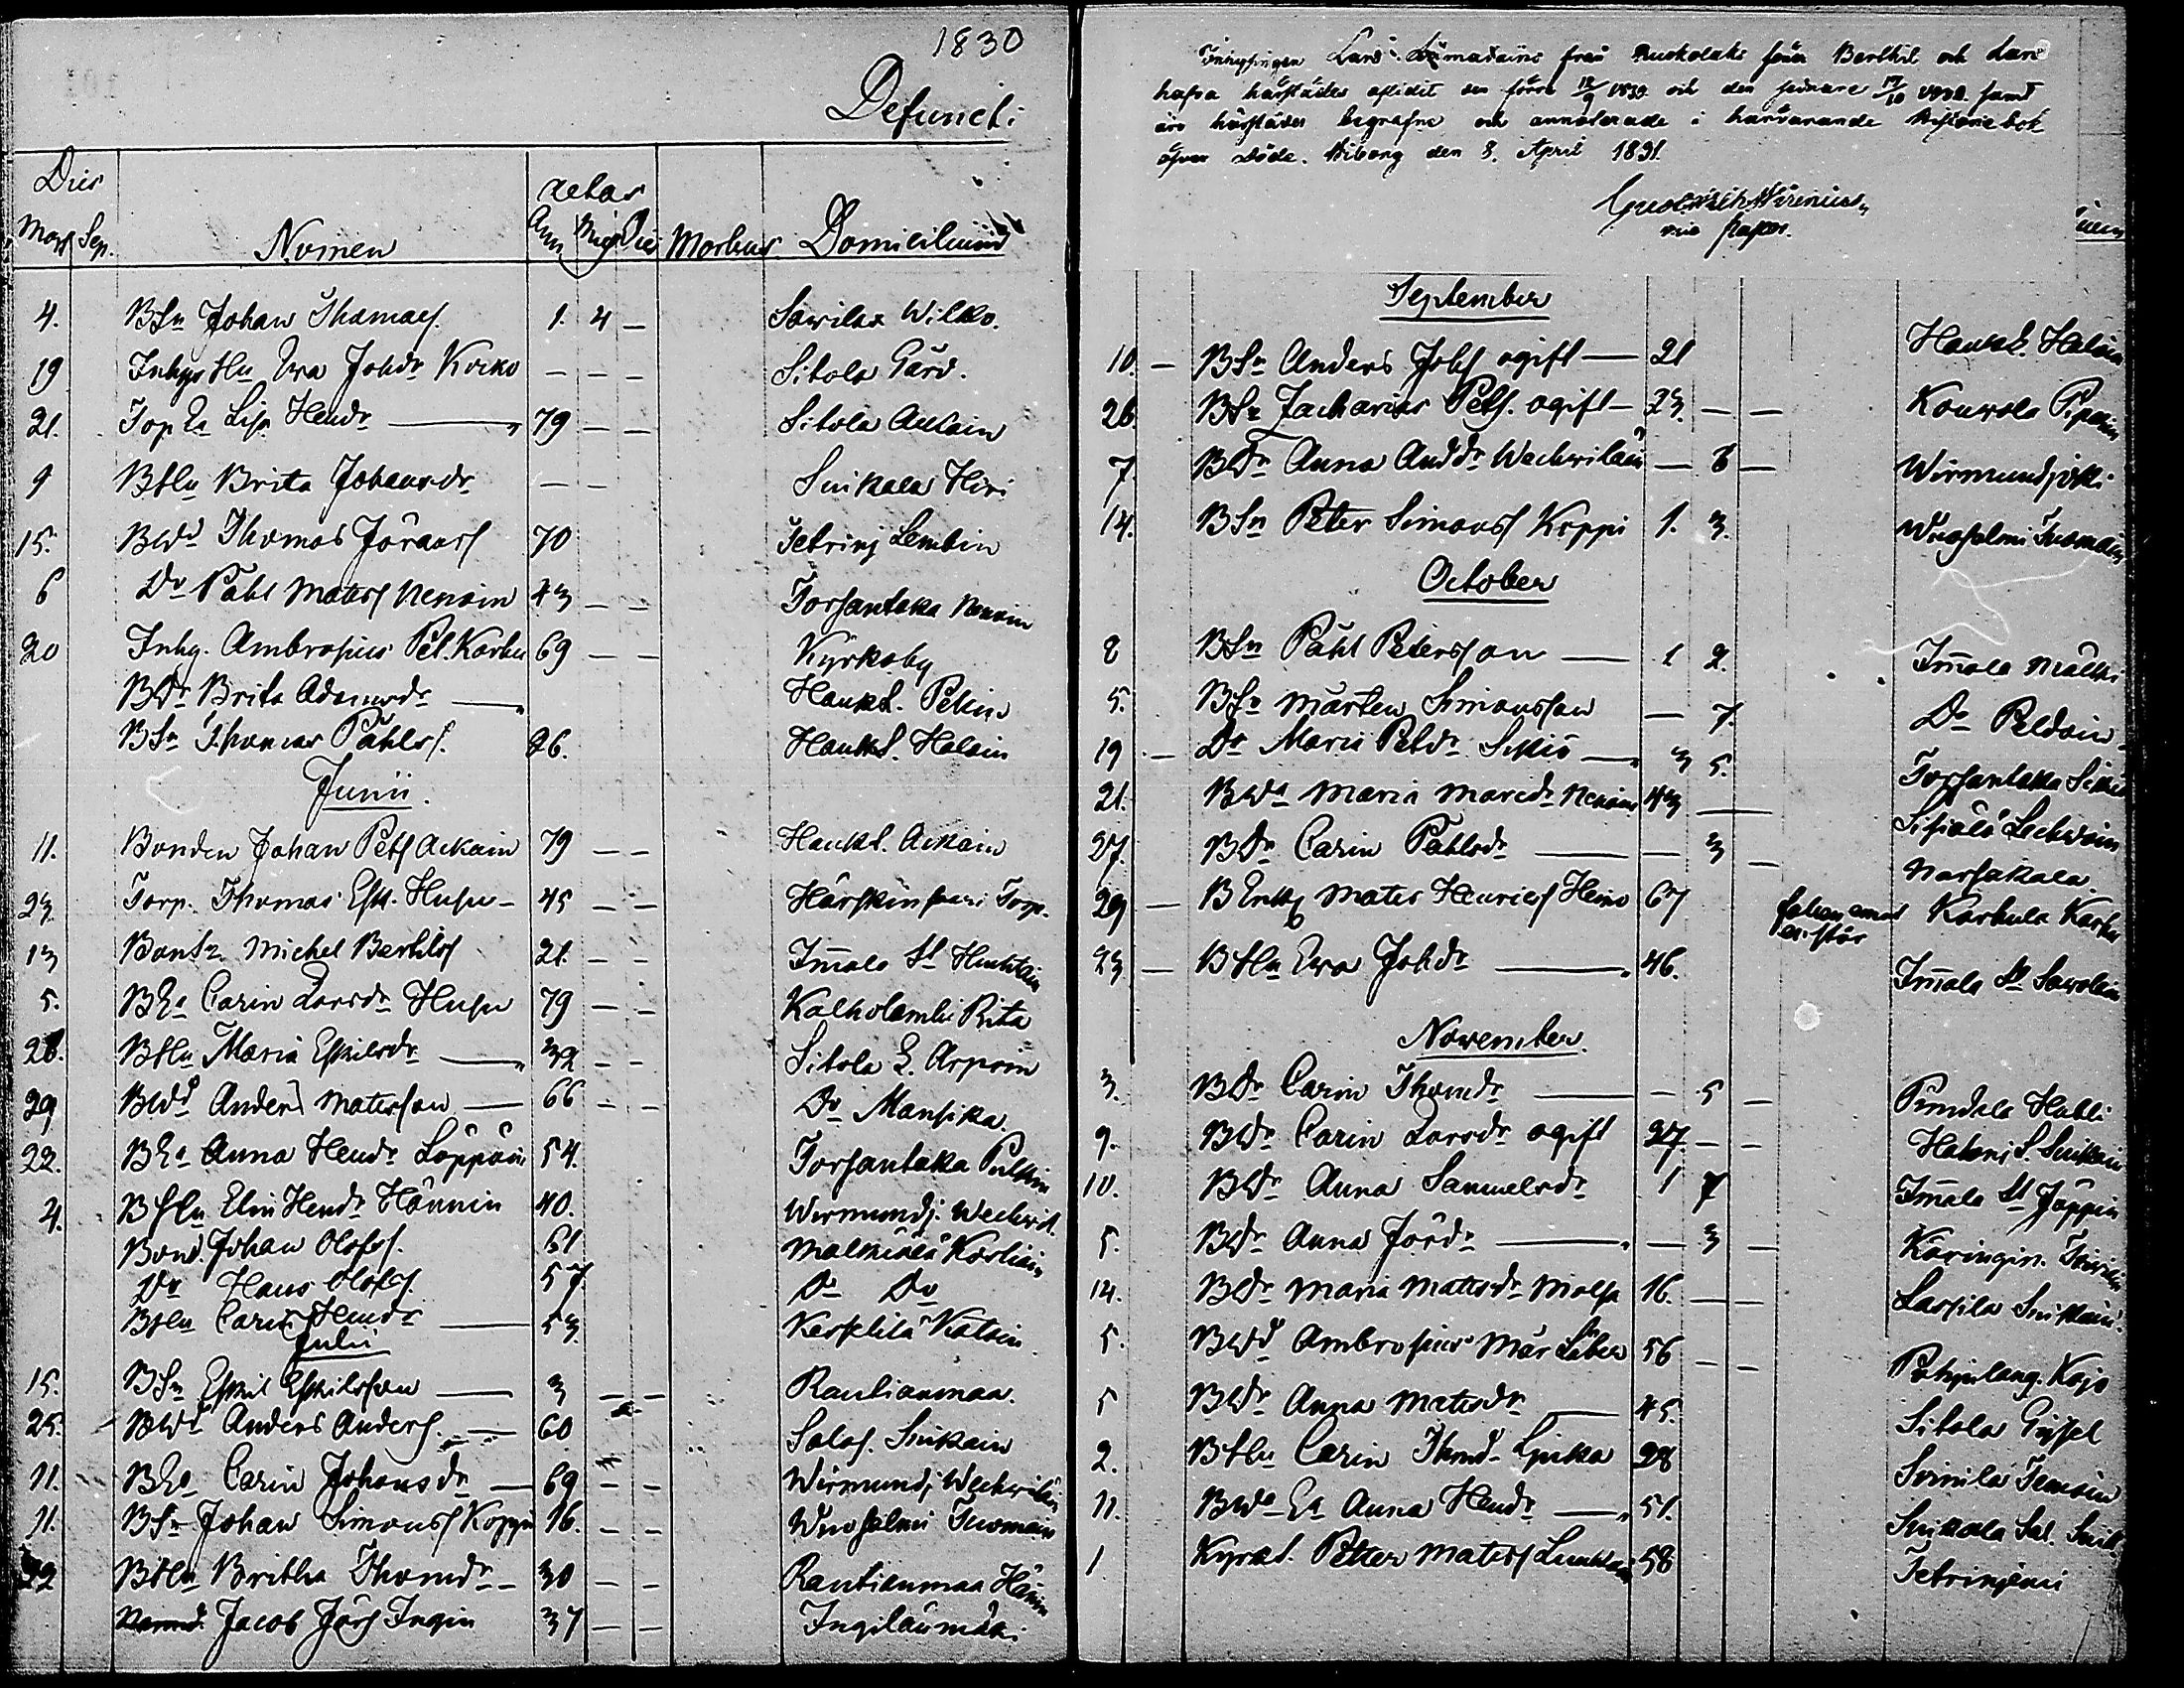 1830
Defuncti
Dies
Mort Sep. Nomen
aetas
Ann. Mens Dies Morbus. Domicilium
4. BSn Johan Thomas. 1. 4 — Sawilax Wilko.
19 Inhys Hu Ewa Johdr Kocko — — — Sitola Gård.
21. Torp Ea Lisa Hendr — 79 — — Sitola Aulain
9 BHu Brita Johansdr — — Suikala Hiri
15. BWd Thomas Jöranss 70 Jetrinj Lembin
6 Do Påhl Matss Nenoin 43 — — Torsantaka Nenoin
20 Inhy. Ambrosius Pet. Karhu 69 — — Kyrkoby
BDr Brita Adamsdr — Haukl. Pekin
BSn Thomas Påhlss. 26. Haukl. Halain
Junii.
11. Bonden Johan Pets Ackain 79 — — Haukl. Ackain
23. Torp. Thomas Esk. Husu — 45 — — Härskinsaari Torp.
13 BonSn Michel Bertils 21. — — Im̄ala Huhtain
5. BEa Carin Larsdr Husu 79 — — Kalholambi Rita
28. BHu Maria Eskilsdr — 32 — — Sitola E. Arpoin
29 BWd Anders Matsson — 66 — — Do Mansika.
22. BEa Anna Hendr Läppäin 54. Torsantaka Pulkin
4. BHu Elin Hendr Hännin 40. Wirmundj. Wechwil.
Bond. Johan Olofss. 61 Malkiälä Korhoin
Do Hans Olofss. 57 Do Do
BHu Carin Hendr — 53. Kesklilä Kätöin
Julii
15. BSn Eskil Eskilsson — 3 — — Rautianmaa.
25. BWd Anders Anderss. — 60 Salos. Suikain
11. BEa Carin Johansdr — 69 — — Wirmundj Wechwiläin
11. BSn Johan Simonss Koppi 16. — — Wuosalmi Tuomain
22 BHu Britha Thomdr — 30 — — Rautianmaa Hänin
Jacob Jörs Ingin 37 — — Ingiläinmäki
Inhysingen Lars från Ruokolaks söner Berthil och Lars
hafva härstädes aflidit den förra 12/9 1830 och den sednare 17/10 1830. samt
äro härstädes begrafne och annoterade i härvarande Historiebok
öfver Döde. Wiborg den 8. April 1831.
pastor.
September
10. — BSn Anders Johs ogift — 21 Haukl. Halain
26. BSn Zacharias Pets. ogift — 23. — — Kouwola Piponin
7. BDr Anna Anddr Wechwiläin — 6 — Wirmundjoki
14. BSn Peter Simonss Koppi 1. 3. Wuosalmi Tuomain
October
8 BSn Påhl Petersson — 1 2. Im̄ala Mälkki
5. BSn Mårten Simonsson — 7. Do Peldoin
19 — Do Maria Petdr Sikiö — 3 5. Torsantaka Sikiö
21. BWa Maria Marcdr Nenoin 43 — Sipiälä Lechwoin
27. BDr Carin Påhlsdr — — 3 — Narsakala.
29 — BEnkl Mats Henrics Heino 67 Karkula Karhu
23 — BHu Ewa Johdr — 46. Im̄ala Sawolain
November.
3. BDr Carin Thomdr — — 5 — Pundala Halli
9. BDr Carin Larsdr ogift 27. — — Hakoni S. Suikain
10. BDr Anna Samuelsdr 1 7 Im̄ala Jäppin
5. BDr Anna Jördr — — 3 — Käringin.
14. BDr Maria Mattsdr Molsa 16. — — Lassila Suikain.
5. BWd Ambrosius Mår 56 — — Pohjalang. Kojo
5 BDr Anna Matsdr — 45. Sitola
2. BHu Carin Thomd. Ljuka 28 Soinila
11. BWa Ea Anna Hendr — 51. Suikala Sal. Suik.
1 Kyrkl. Petter Matss 58 Jetrinjemi